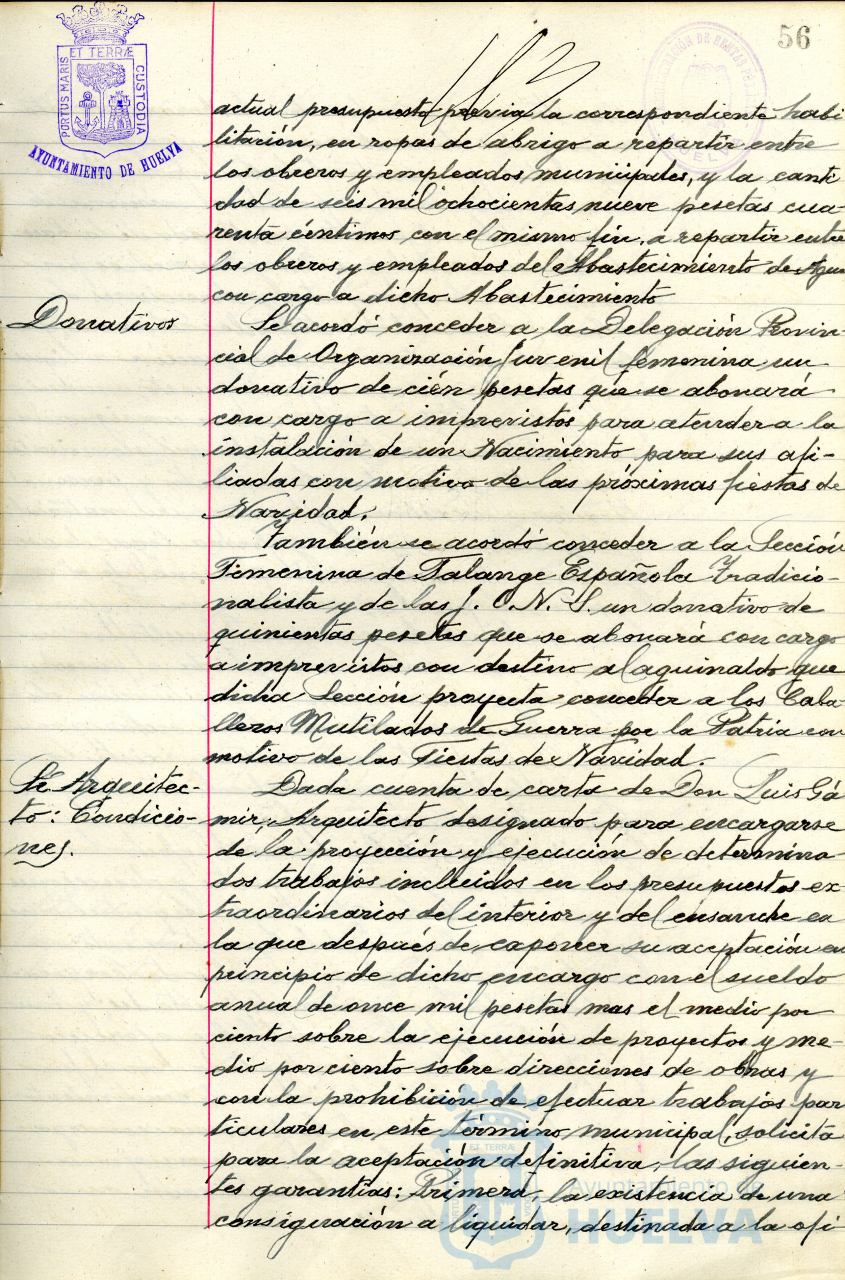 56
PORTUS MARIS ET TERRÆ CUSTODIA
AYUNTAMIENTO DE HUELVA
actual presupuesto previa la correspondiente habi
litación, en ropas de abrigo a repartir entre
los obreros y empleados municipales, y la canti
dad de seis mil ochocientas nueve pesetas cua-
renta céntimos con el mismo fin, a repartir entre
los obreros y empleados del Abastecimiento de Agua
con cargo a dicho Abastecimiento
Donativos
Se acordó conceder a la Delegación Provin-
cial de Organización Juvenil femenina un
donativo de cién pesetas que se abonará
con cargo a imprevistos para atender a la
instalación de un Nacimiento para sus afi-
liadas con motivo de las próximas fiestas de
Navidad.
También se acordó conceder a la Sección
Femenina de Falange Española Tradicio-
nalista y de las J. O. N. S. un donativo de
quinientas pesetas que se abonará con cargo
a imprevistos con destino al aguinaldo que
dicha Sección proyecta conceder a los Caba-
lleros Mutilados de Guerra por la Patria con
motivo de las Fiestas de Navidad.
Arquitec-
to: Condicio-
nes.
Dada cuenta de carta de Don Luis Gá
mir, Arquitecto designado para encargarse
de la proyección y ejecución de determina
dos trabajos incluidos en los presupuestos ex-
traordinarios del interior y del ensanche en
la que después de exponer su aceptación en
principio de dicho encargo con el sueldo
anual de once mil pesetas mas el medio por
ciento sobre la ejecución de proyectos y me-
dio por ciento sobre direcciones de obras y
con la prohibición de efectuar trabajos par
ticulares en este término municipal, solicita
para la aceptación definitiva, las siguien-
tes garantias: Primera, la existencia de una
consignación a liquidar, destinada a la ofi
Ayuntamiento de
HUELVA